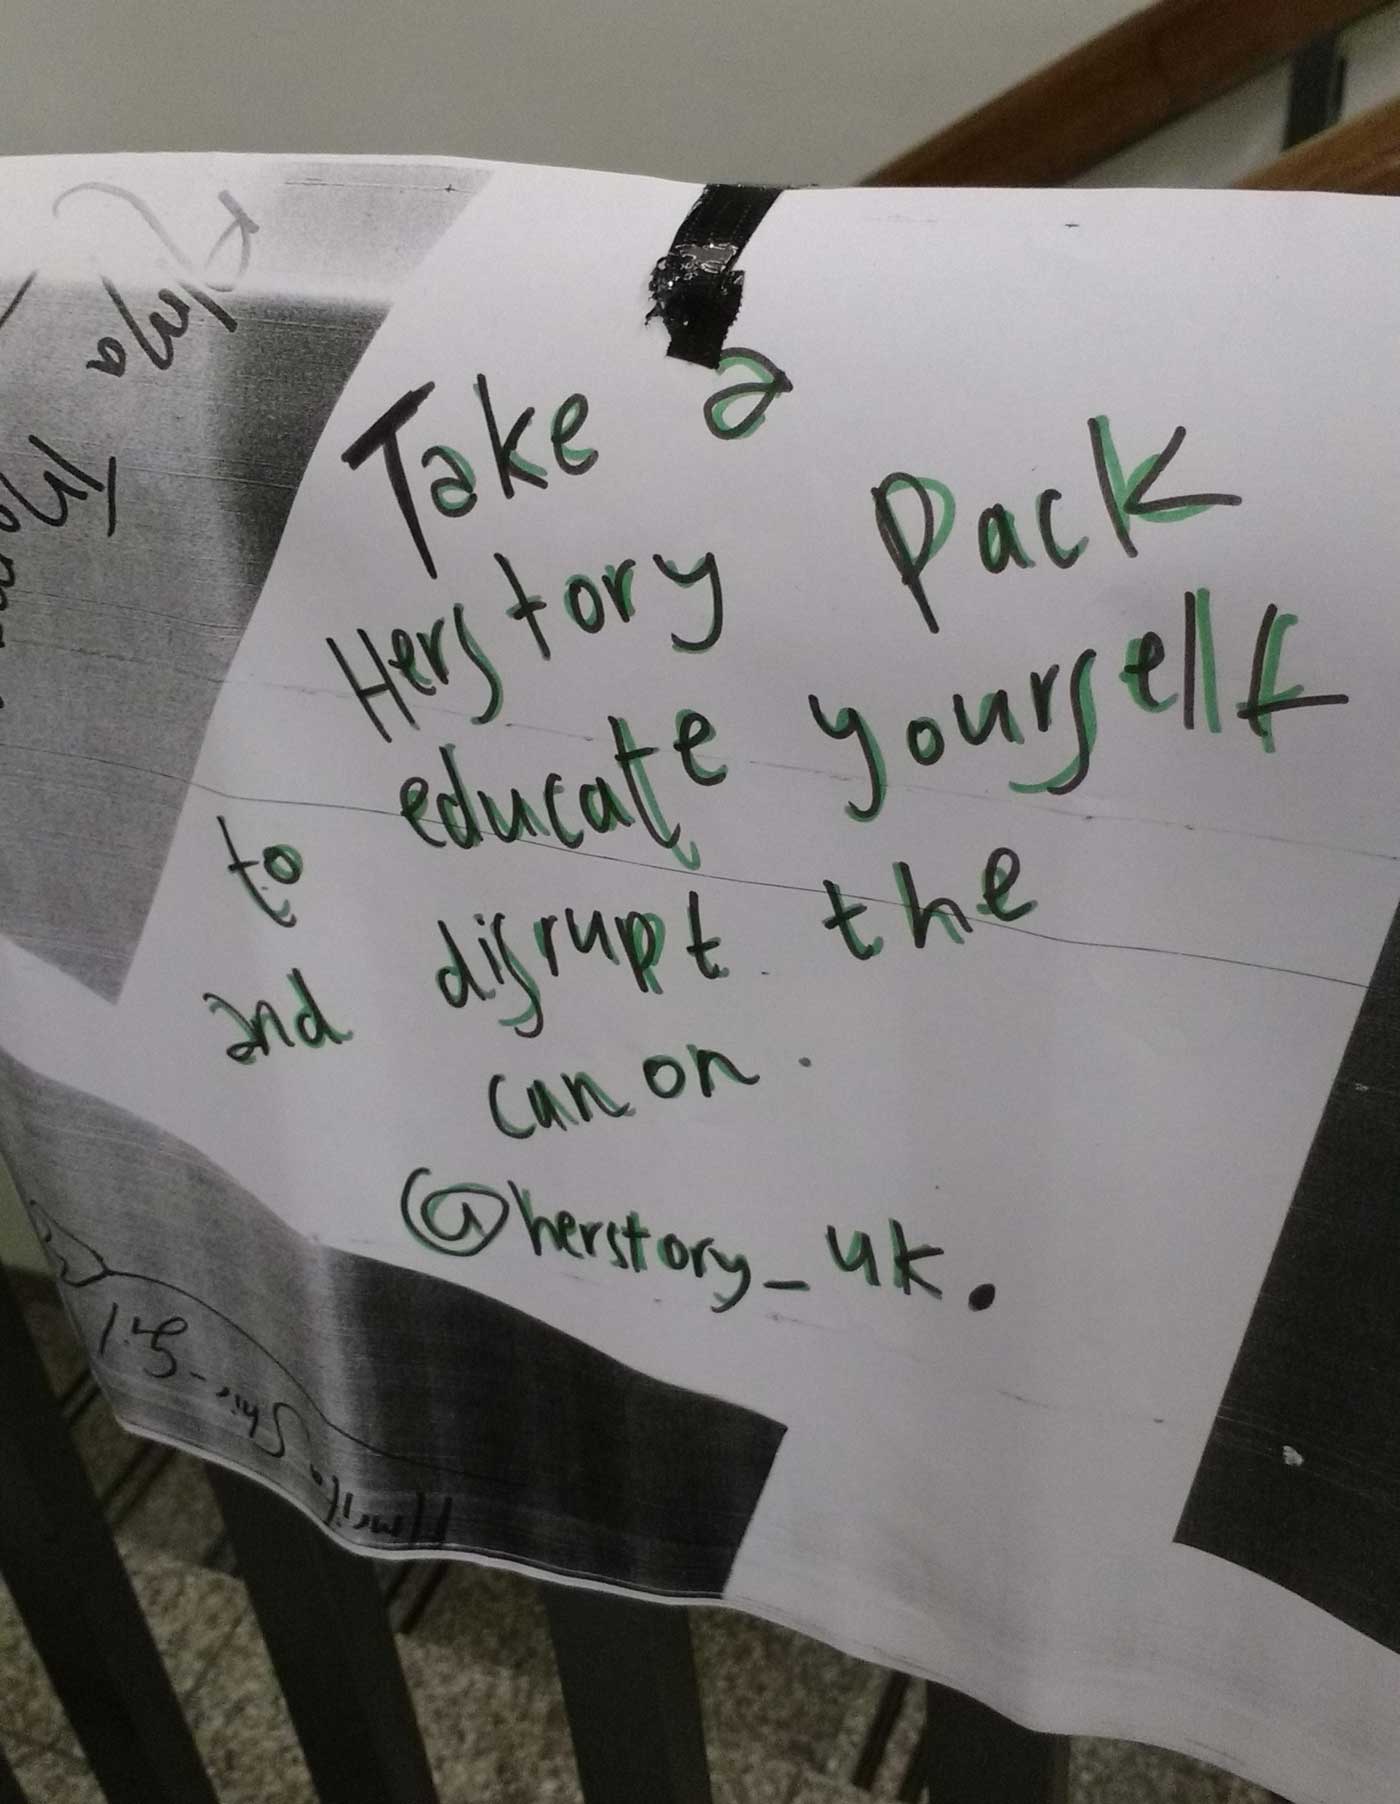 Take a
Herstory Pack
to educate yourself
and disrupt the
canon.
@herstory_uk.
Amrita Sher-Gil